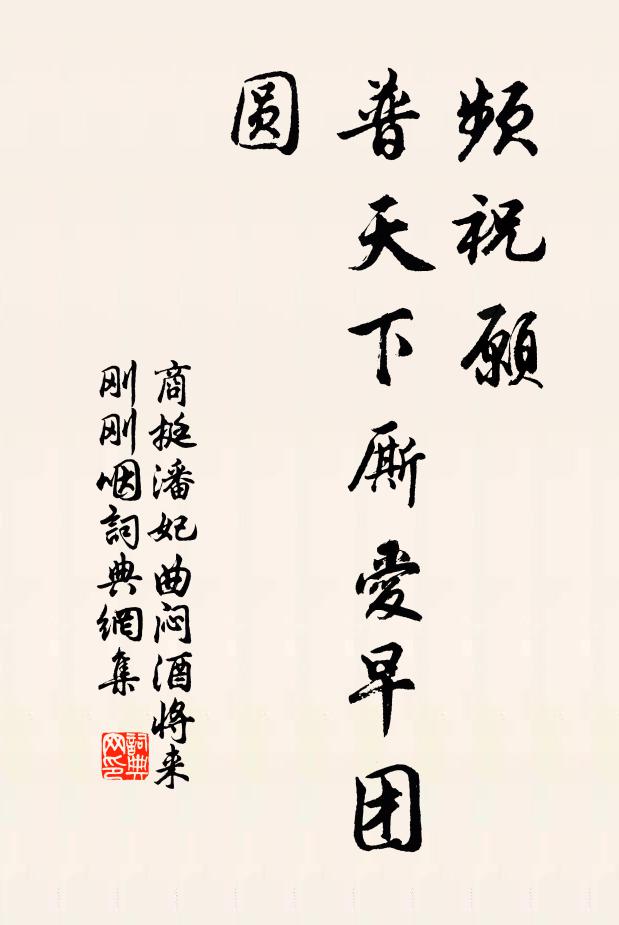 頻祝願
普天下厮愛早团
圆
商挺潘妃曲闷酒将来
刚刚咽詞典網集
詞典
网印